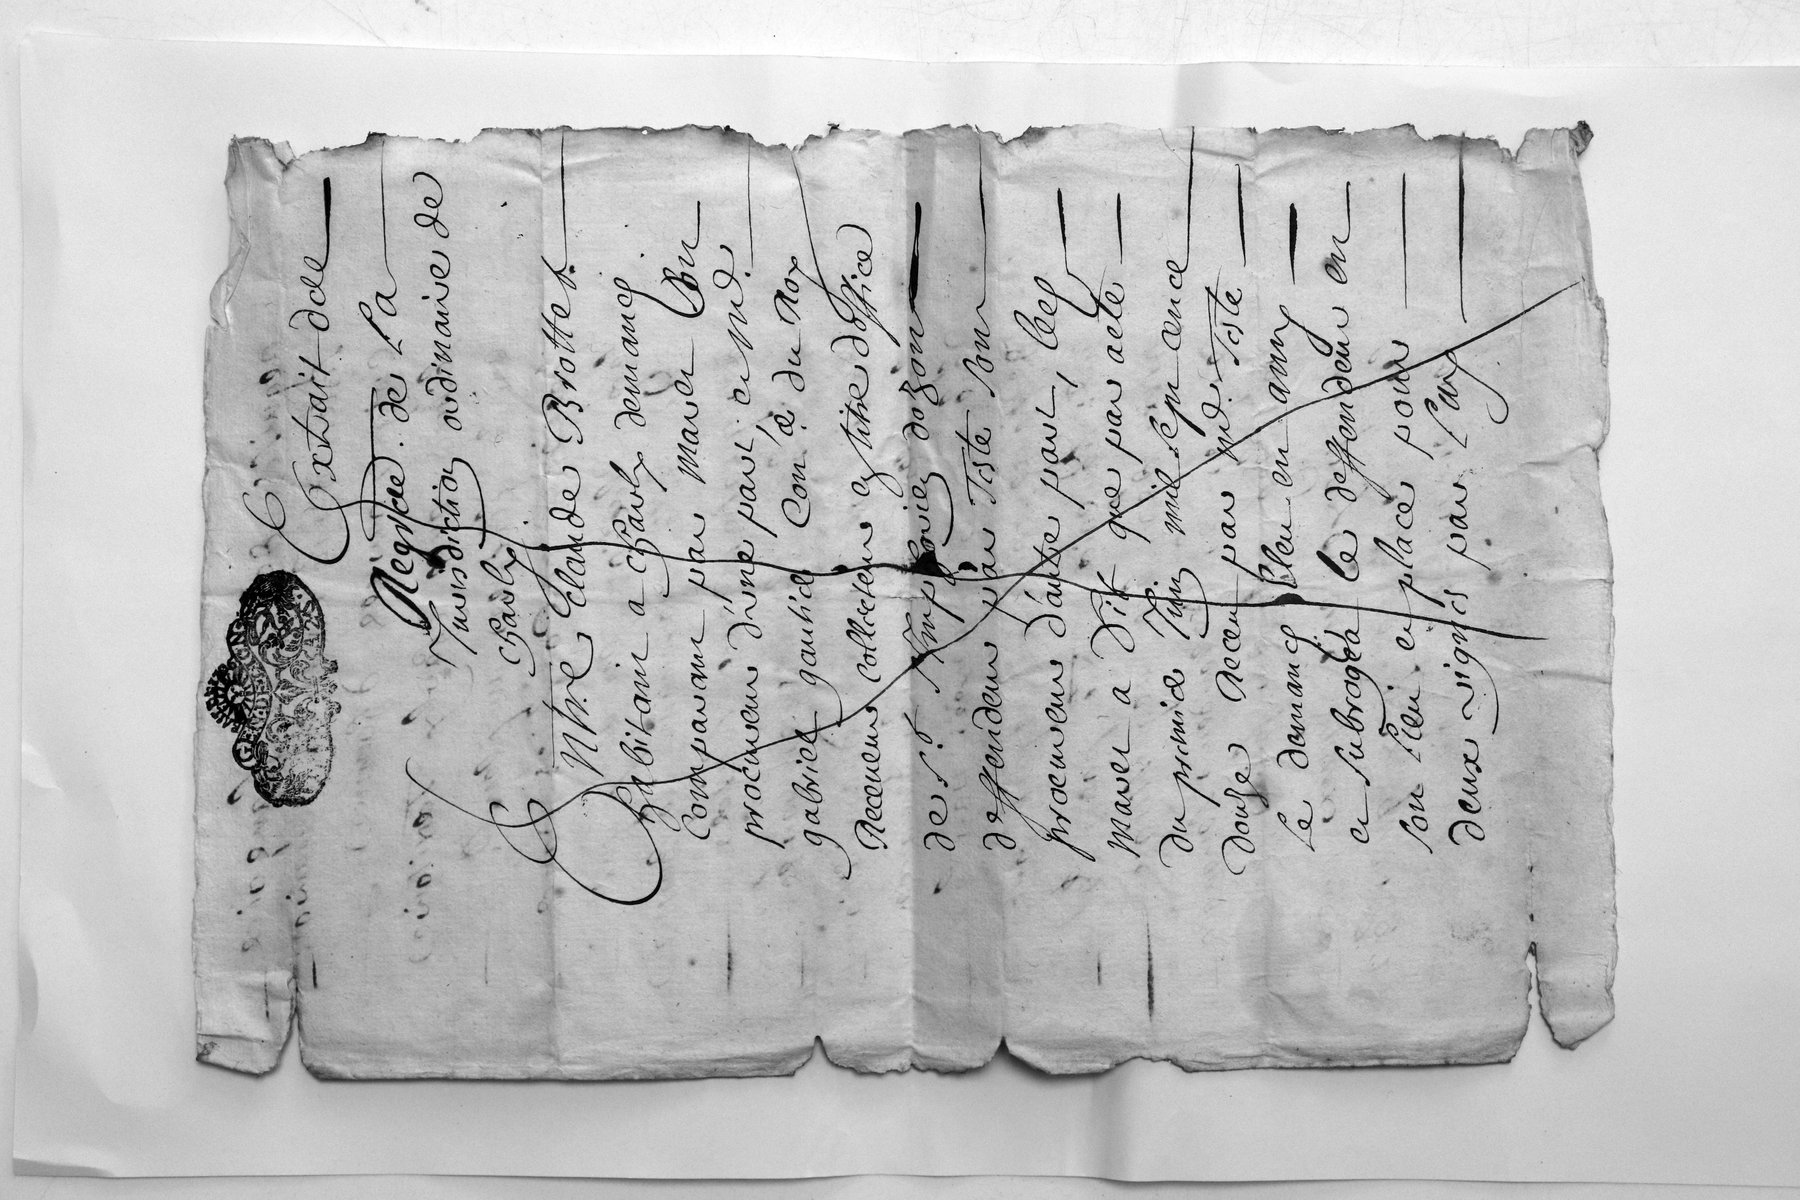 GEN. DE LION
Extrait des
Regres de La
Jurisdiction ordinaire de
Charly
Mre Claude Brottet
habitant a Charly demandr
Comparant par Maver son
procureur d'une part, et Md
gabriel gautier Conr du Roy
Receveur collecteur et titre doffice
de st Simphorien dozon
deffendeur par Teste son
procureur d'autre part, led
Maver a dit que par acte
du premier Juin mil sept cence
douze Receu par md Teste
Le demandr
a subrogea le deffendeur en
son lieu et place pour
deux vignes par Luy